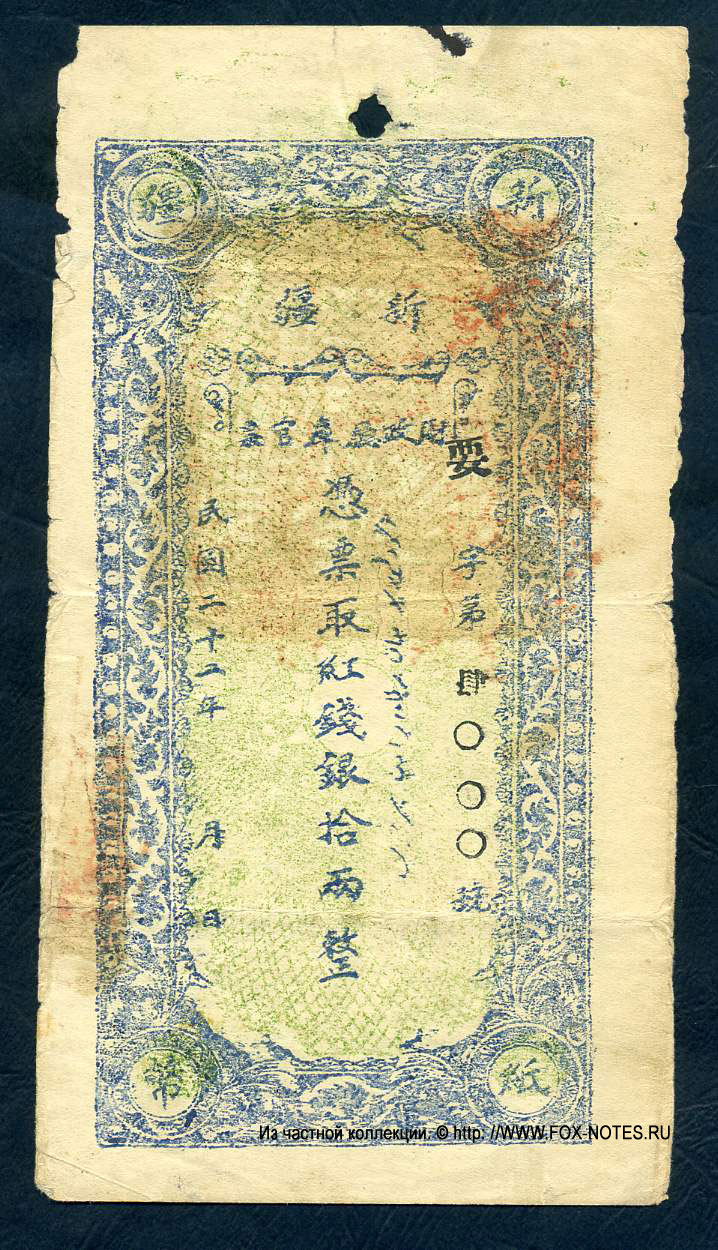 新疆
紙幣
新疆
財政廳庫官票
要字第肆〇〇〇號
憑票取紅錢銀拾兩整
民國二十二年 月 日
Из частной коллекции. © http: //WWW.FOX-NOTES.RU